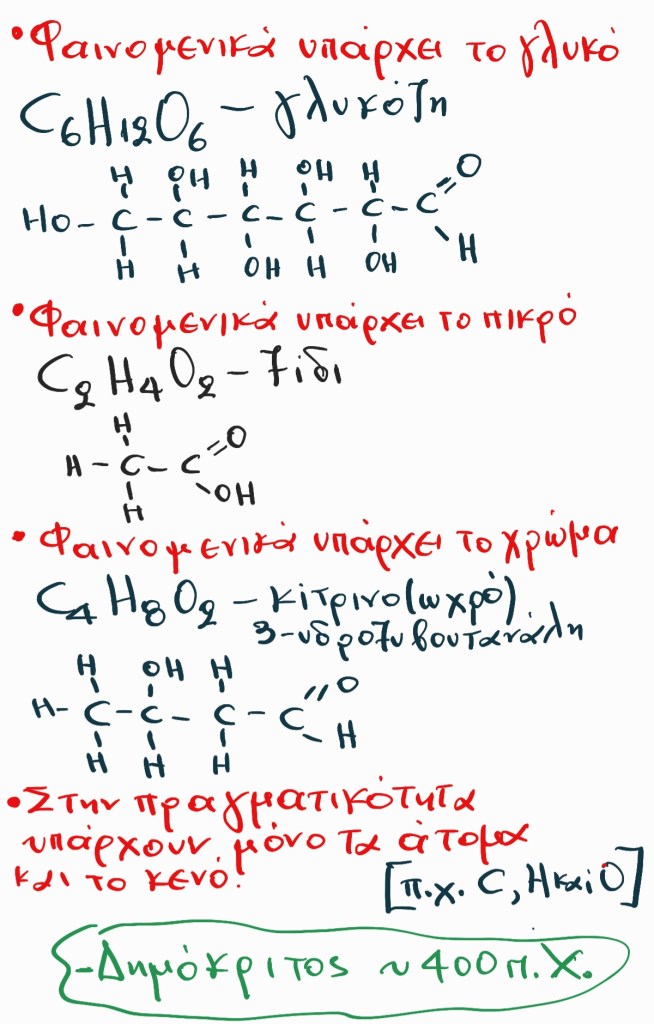 • Φαινομενικά υπάρχει το γλυκό
C6H12O6 – γλυκόζη
H OH H OH H O
HO – C – C – C – C – C – C
H H OH H OH H
• Φαινομενικά υπάρχει το πικρό
C2H4O2 – ξίδι
H O
H – C – C
H OH
• Φαινομενικά υπάρχει το χρώμα
C4H8O2 – κίτρινο (ωχρό)
3-υδροξυβουτανάλη
H OH H O
H – C – C – C – C
H H H H
• Στην πραγματικότητα
υπάρχουν μόνο τα άτομα
και το κενό!
[π.χ. C, H και O]
– Δημόκριτος ~ 400 π.Χ.